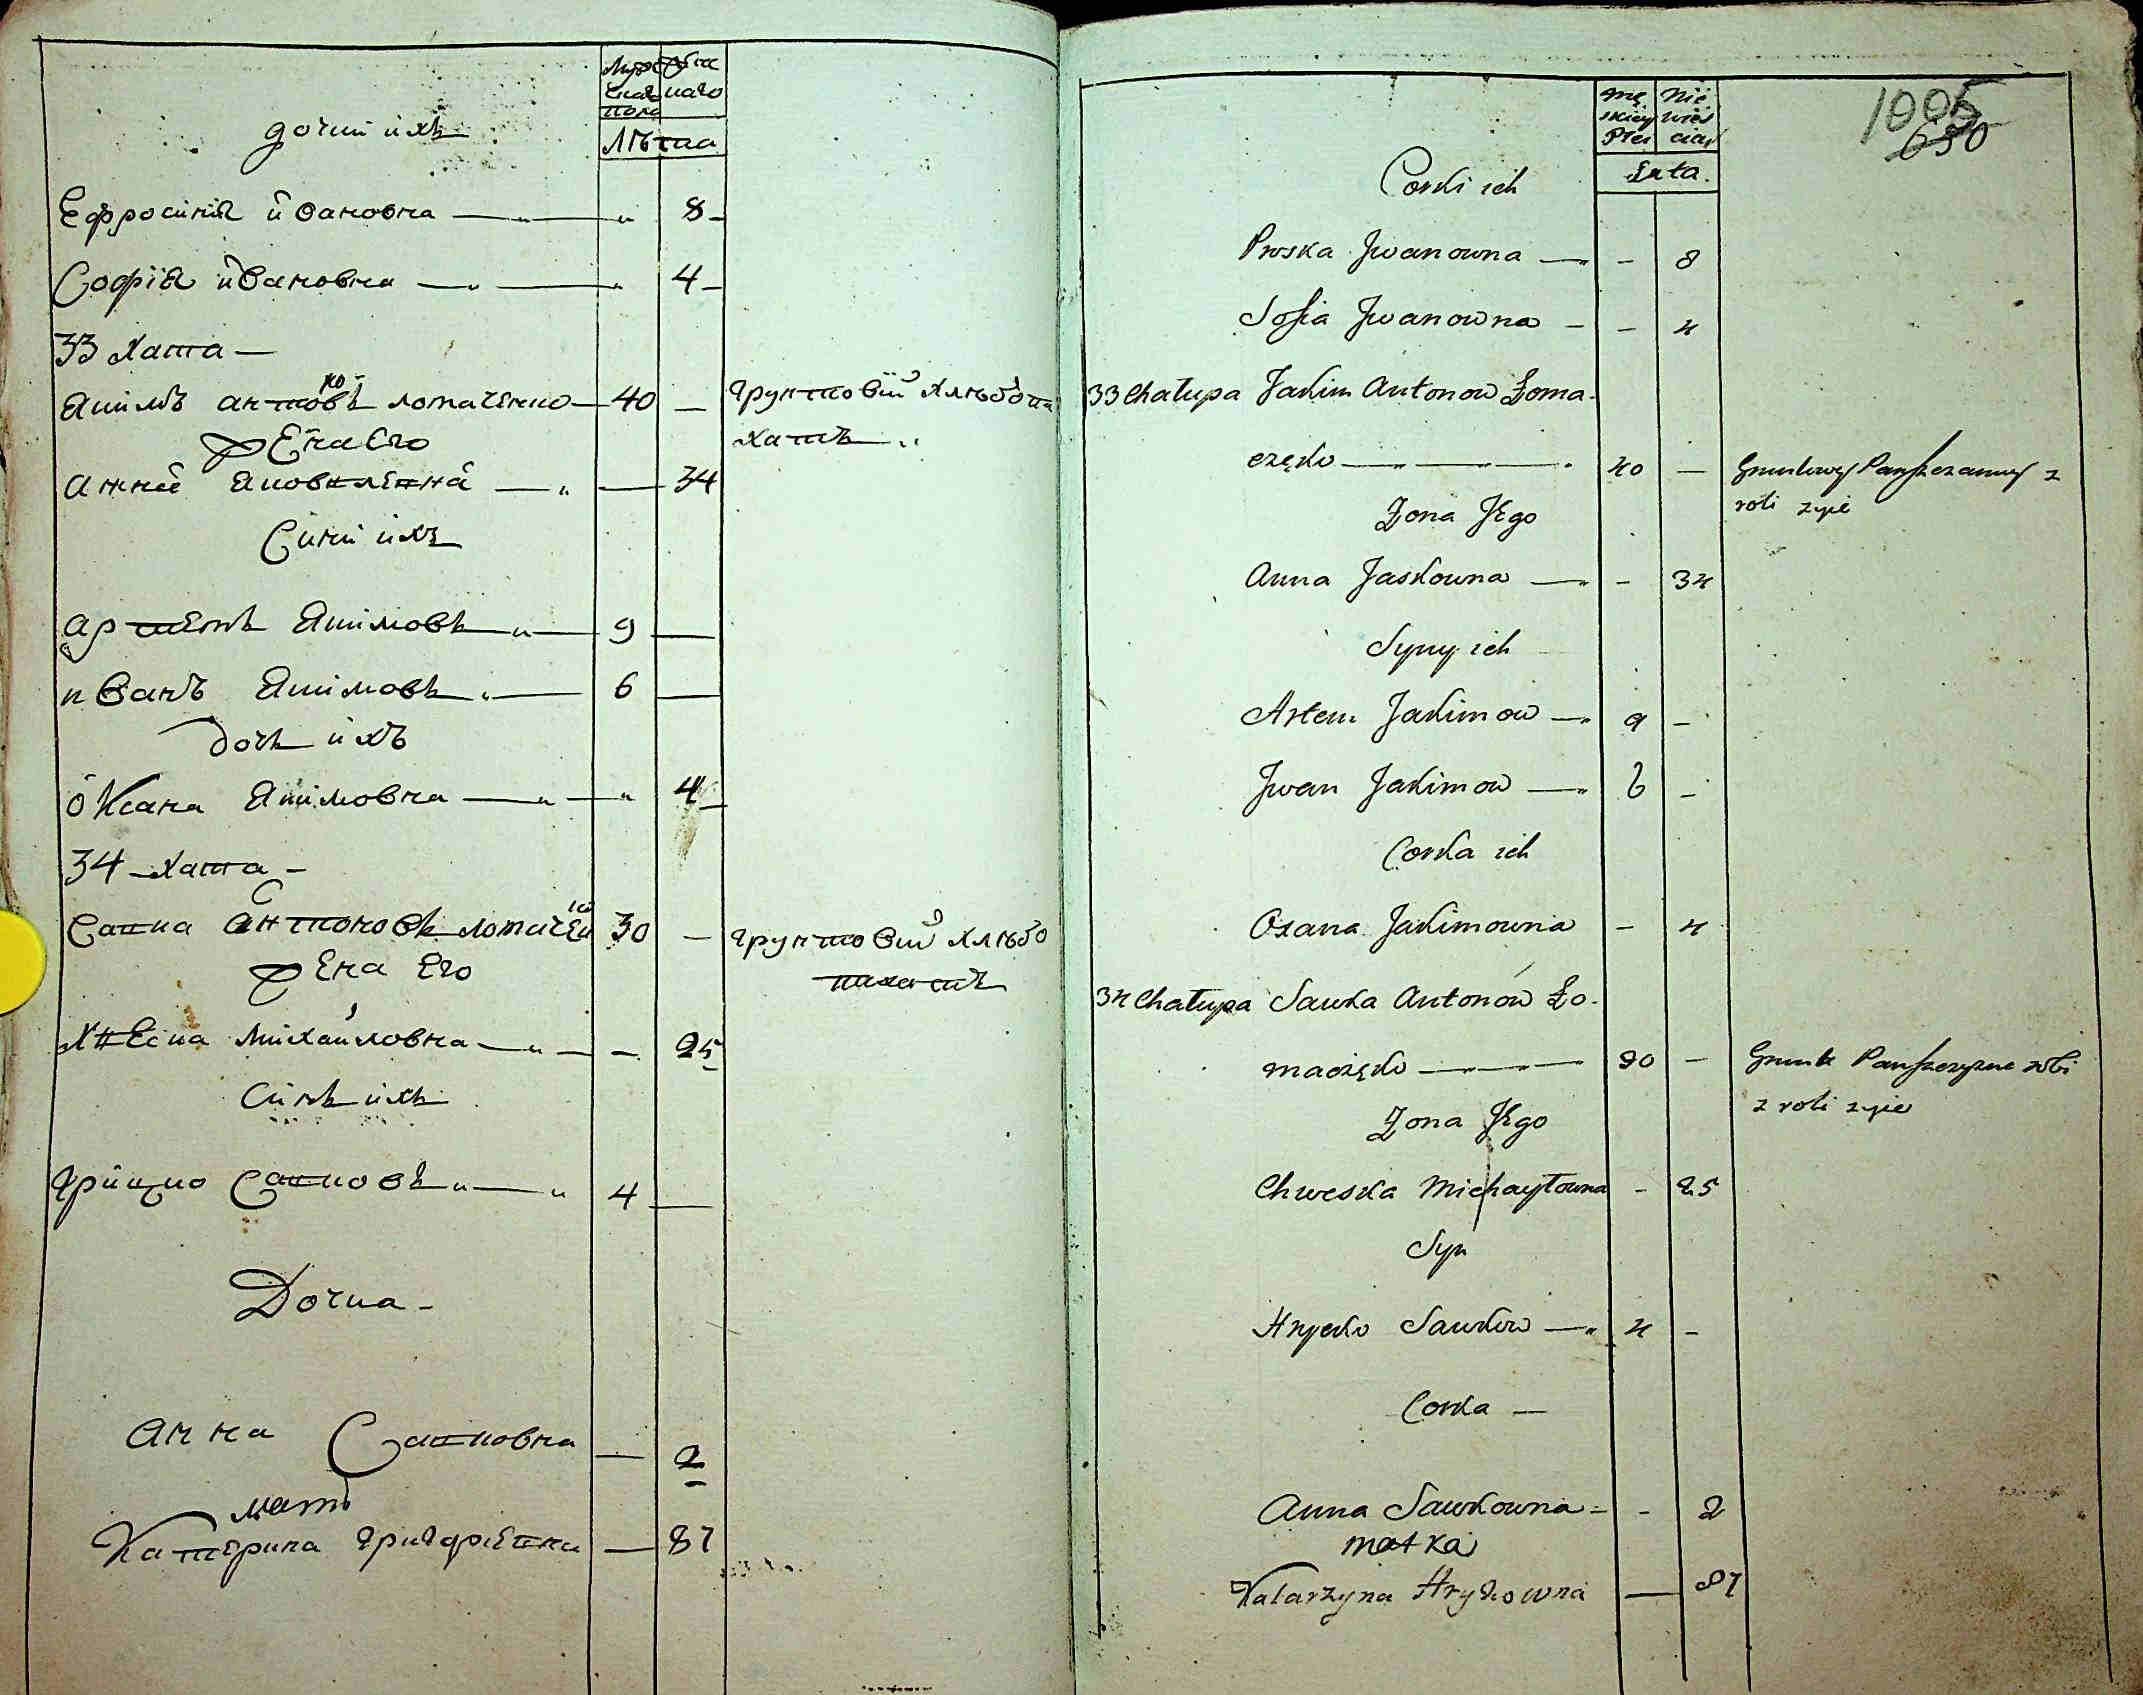 Муже
скаго
пола
Жен
скаго
Лѣта
дочки ихъ
Ефросинія Ивановна — „ 8
Софія Ивановна — „ 4
33 хата —
Якимъ Антоновъ Ломаченко — 40 — грунтовій хлѣбопа
хатъ
жена Его
Анна Яковлевна — „ — 34
Сини ихъ
Артемъ Якимовъ „ — 9 —
Иванъ Якимовъ „ — 6 —
дочь ихъ
Оксана Якимовна — „ 4
34 хата —
Савка Антоновъ Ломаченко 30 — грунтовій хлѣбо
пахатъ
жена Его
Хвеска Михайловна — „ — 25
Синъ ихъ
Грицко Савковъ „ — „ 4 —
Дочка —
Анна Савковна — 2
мать
Катерина — 87
mę
skiey
Płci
Nie
wies
ciey
Lata.
1005
650
Corki ich
Proska Jwanowna — - 8
Sofia Jwanowna - - 4
33 Chałupa Jakim Antonow Łoma-
częko — 40 — Gruntowy Pańszczanny z
roli zyie
Żona Jego
Anna Jaskowna — - 34
Syny ich
Artem Jakimow — 9 -
Jwan Jakimow — 6 -
Corka ich
Oxana Jakimowna - 4
34 Chałupa Sawka Antonów Ło-
maczęko — 30 — Grunt Pańszczyzne robi
z roli zyie
Żona Jego
Chweska Michayłowna - 25
Syn
Hrycko Sawkow — 4 -
Corka —
Anna Sawkowna - - 2
matka
Katarzyna Hryhowna — 87